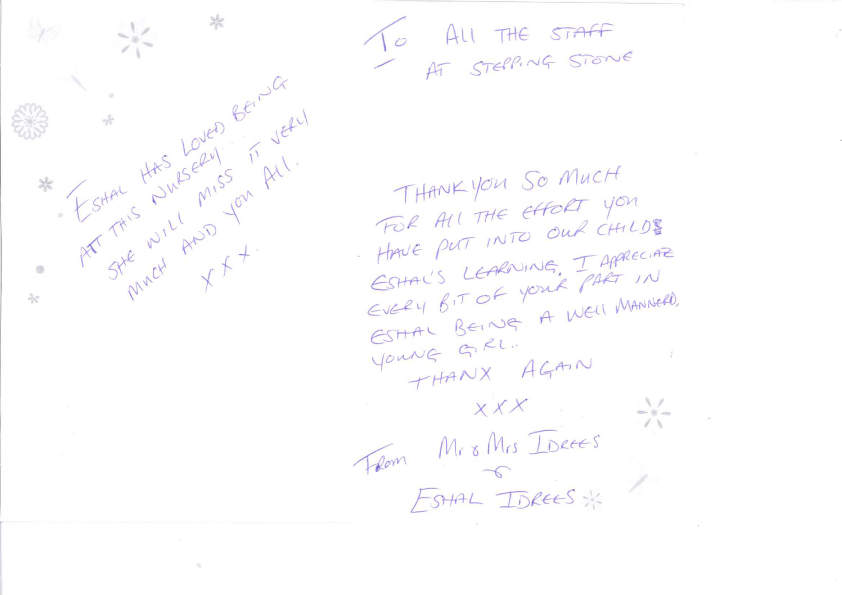 ESHAL HAS LOVED BEING
ATT THIS NURSERY.
SHE WILL MISS IT VERY
MUCH AND YOU ALL.
X X X.
To All THE STAFF
AT STEPPING STONE
THANK YOU SO MUCH
FOR All THE EFFORT YOU
HAVE PUT INTO OUR CHILDS
ESHAL'S LEARNING. I APPRECIATE
EVERY BIT OF YOUR PART IN
ESHAL BEING A WELL MANNERD,
YOUNG GIRL..
THANX AGAIN
XXX
FROM Mr & Mrs IDREES
&
ESHAL IDREES